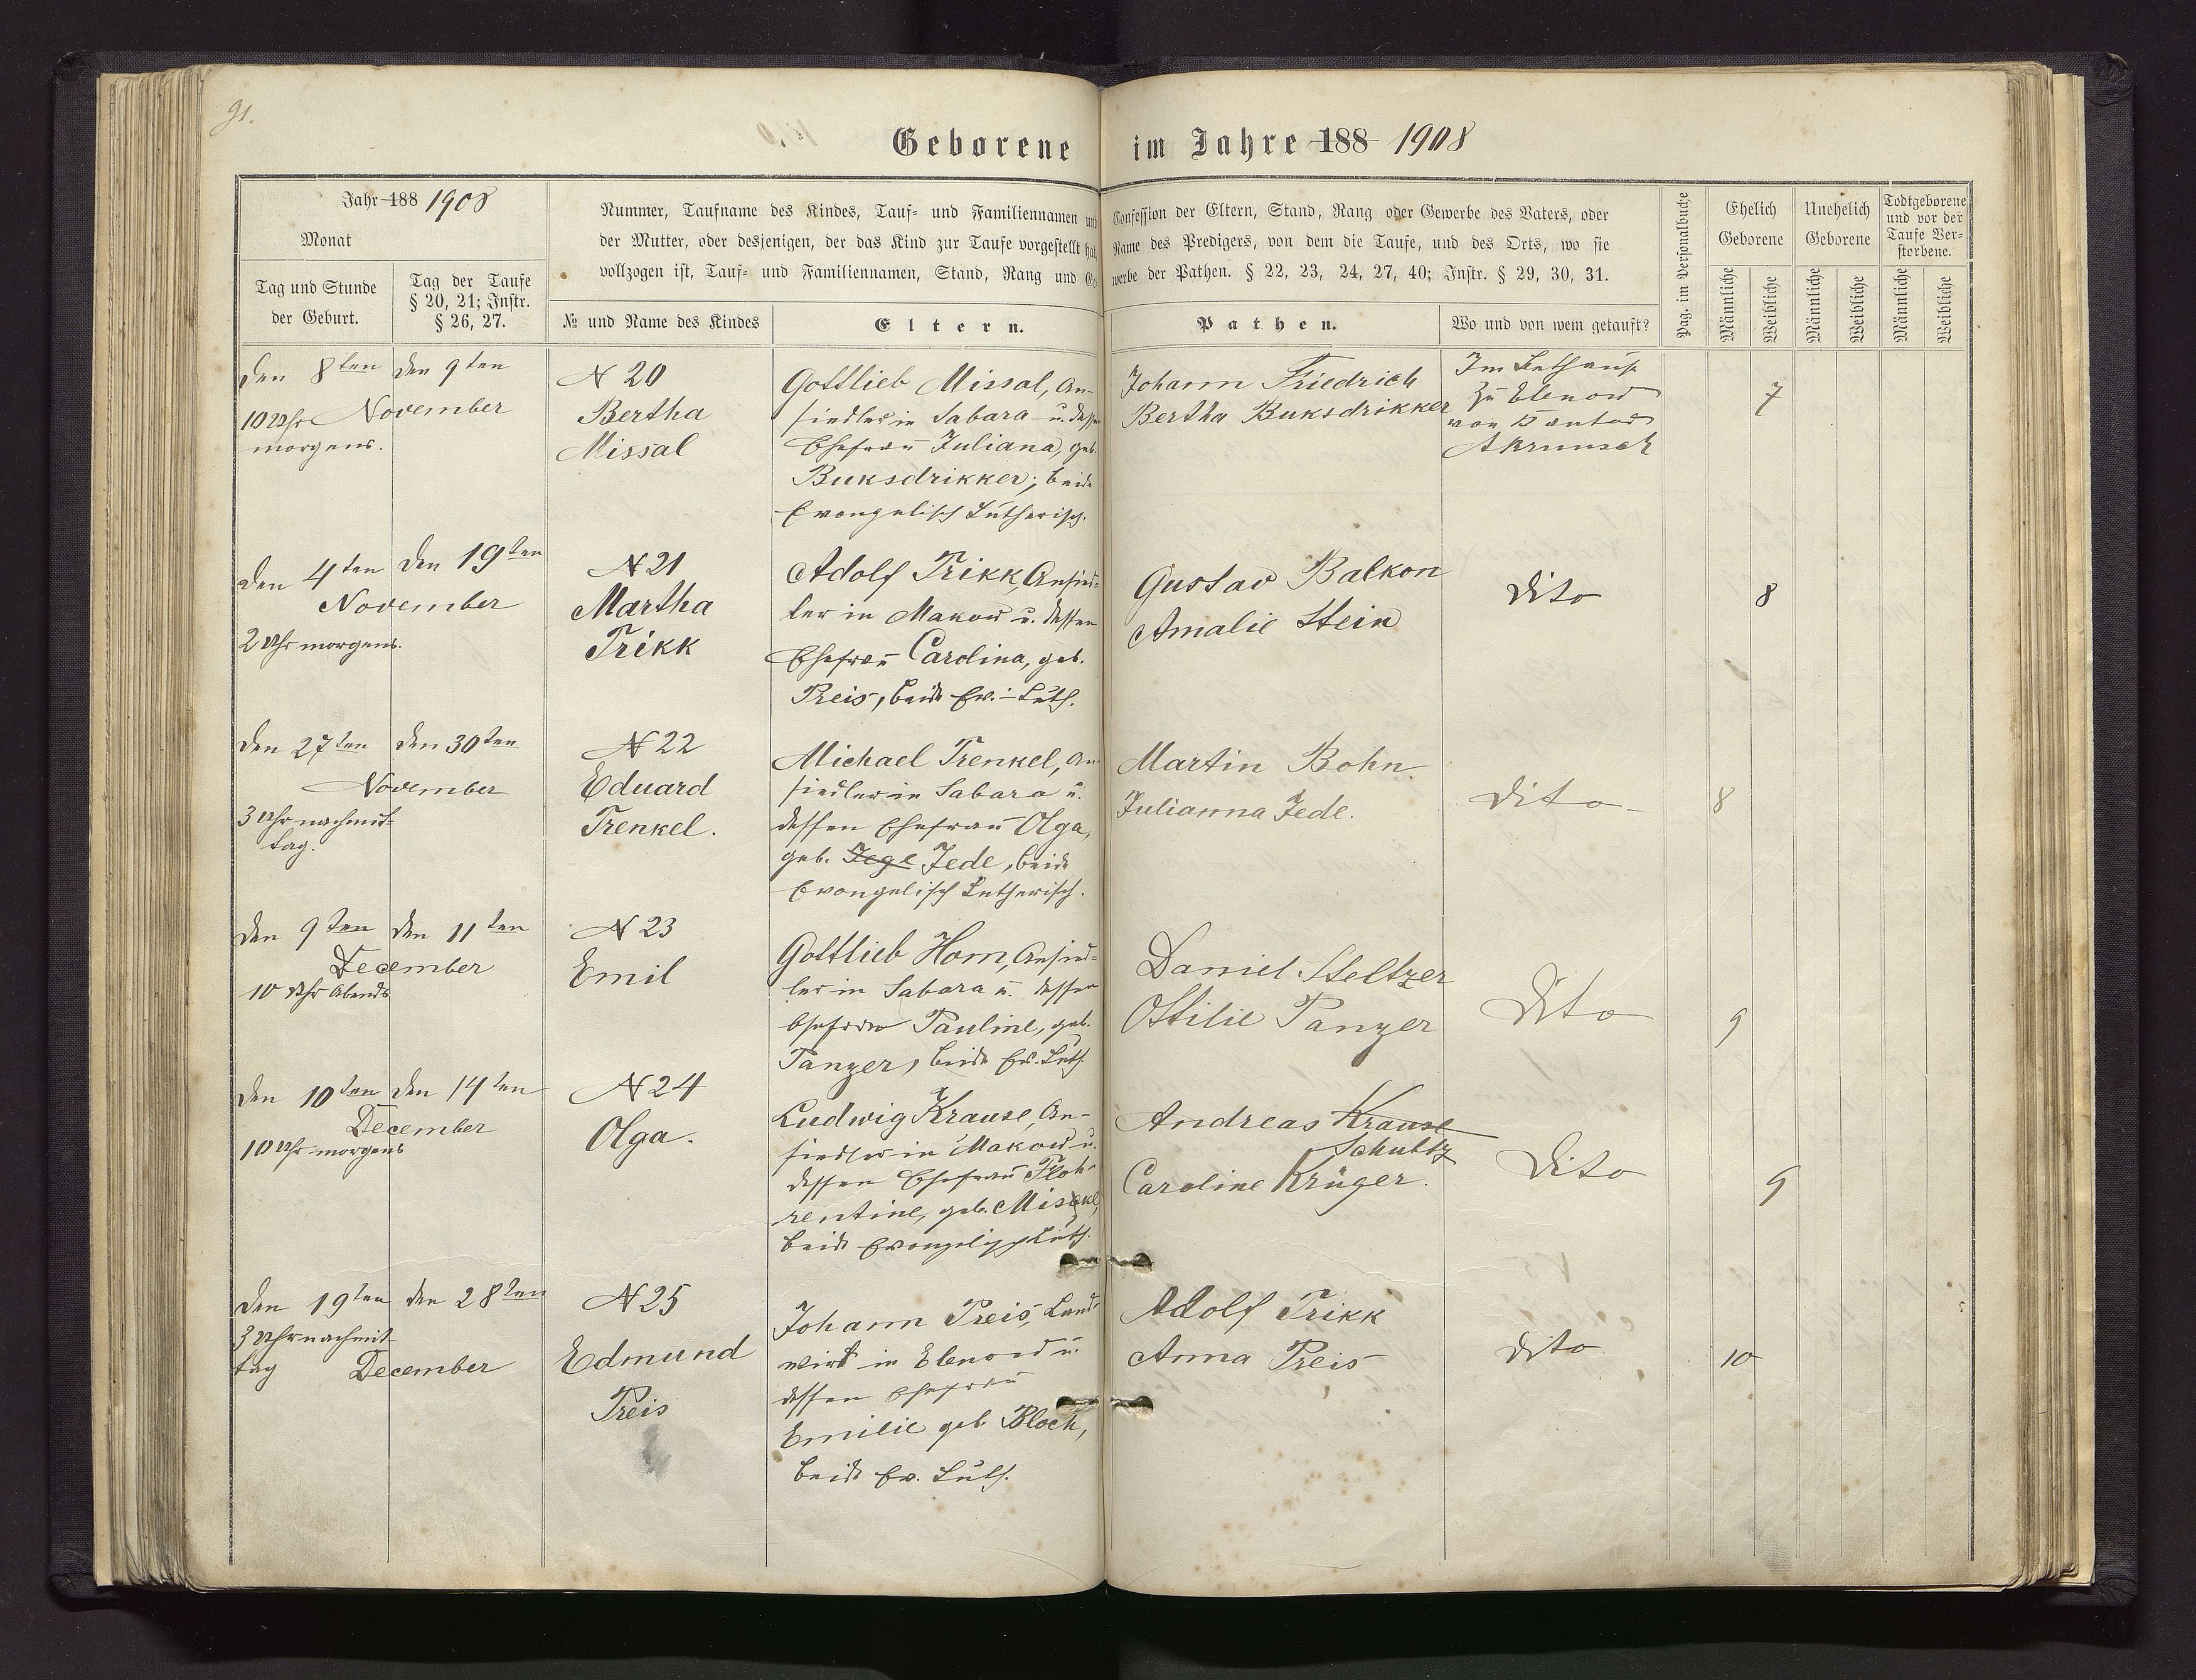 91.
Geborene im Jahre 188 1908
Jahr 188 1908
Monat
Tag und Stunde
der Geburt.
Tag der Taufe
§ 20, 21; Instr.
§ 26, 27.
Nummer, Taufname des Kindes, Tauf- und Familiennamen und Confession der Eltern, Stand, Rang oder Gewerbe des Vaters, oder
der Mutter, oder desjenigen, der das Kind zur Taufe vorgestellt hat, Name des Predigers, von dem die Taufe, und des Orts, wo sie
vollzogen ist, Tauf- und Familiennamen, Stand, Rang und Ge- werbe der Pathen. § 22, 23, 24, 27, 40; Instr. § 29, 30, 31.
№ und Name des Kindes
Eltern.
Pathen.
Wo und von wem getauft?
Pag. im Personalbuche
Ehelich
Geborene
Unehelich
Geborene
Todtgeborene
und vor der
Taufe Ver-
storbene.
Männliche
Weibliche
Männliche
Weibliche
Männliche
Weibliche
den 8ten den 9ten
November
10 Uhr
morgens.
N 20
Bertha
Missal
Gottlieb Missal, An-
siedler in Sabara u. dessen
Ehefrau Juliana, geb.
Buksdrikker; beide
Evangelisch Lutherisch.
Johann Friedrich
Bertha Buksdrikker
Im Bethause
zu Blenow
von Kantor
A Krunsch
7
den 4ten den 19ten
November
2 Uhr morgens.
N 21
Martha
Trikk
Adolf Trikk, Ansied-
ler in Makow u. dessen
Ehefrau Carolina, geb.
Preis, beide Ev.-Luth.
Gustav Balkon
Amalie Stein
Dito
8
den 27ten den 30ten
November
3 Uhr nachmit-
tag.
N 22
Eduard
Trenkel.
Michael Trenkel, An-
siedler in Sabara u.
dessen Ehefrau Olga,
geb. Jege Jede, beide
Evangelisch Lutherisch.
Martin Bohn.
Julianna Jede.
Dito
8
den 9ten den 11ten
December
10 Uhr Abends
N 23
Emil
Gottlieb Horn, Ansied-
ler in Sabara u. dessen
Ehefrau Pauline, geb.
Panzer, beide Ev. Luth.
Daniel Steltzer
Ottilie Panzer
Dito
9
den 10ten den 14ten
December
10 Uhr morgens
N 24
Olga.
Ludwig Krause, An-
siedler in Makow u.
dessen Ehefrau Floh-
rentine, geb. Miske,
beide Evangelisch Luth.
Andreas Krause
Schultz
Caroline Krüger.
Dito
9
den 19ten den 28ten
3 Uhr nachmit-
tag December
N 25
Edmund
Preis
Johann Preis, Land-
wirt in Blenow u.
dessen Ehefrau
Emilie geb Bloch,
beide Ev. Luth.
Adolf Trikk
Anna Preis
Dito
10